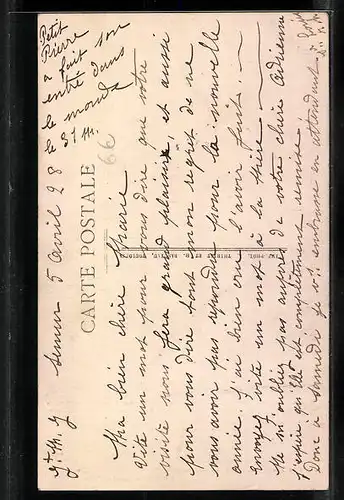 Petit
Pierre
a fait son
entré dans
le monde
le 31 M.
66
CARTE POSTALE
Semur 5 avril 28
Ma bien chère Marie
Vite un mot pour vous dire que votre
visite nous fera grand plaisir, et aussi
pour vous dire tout mon regret de ne
vous avoir pas répondu pour la nouvelle
année. J'ai bien cru l'avoir fait.
Envoyez vite un mot à la
Ne m'oubliez pas auprès de votre chère Adrienne
J'espère qu'elle est complètement remise
Donc à samedi je vs embrasse en attendant